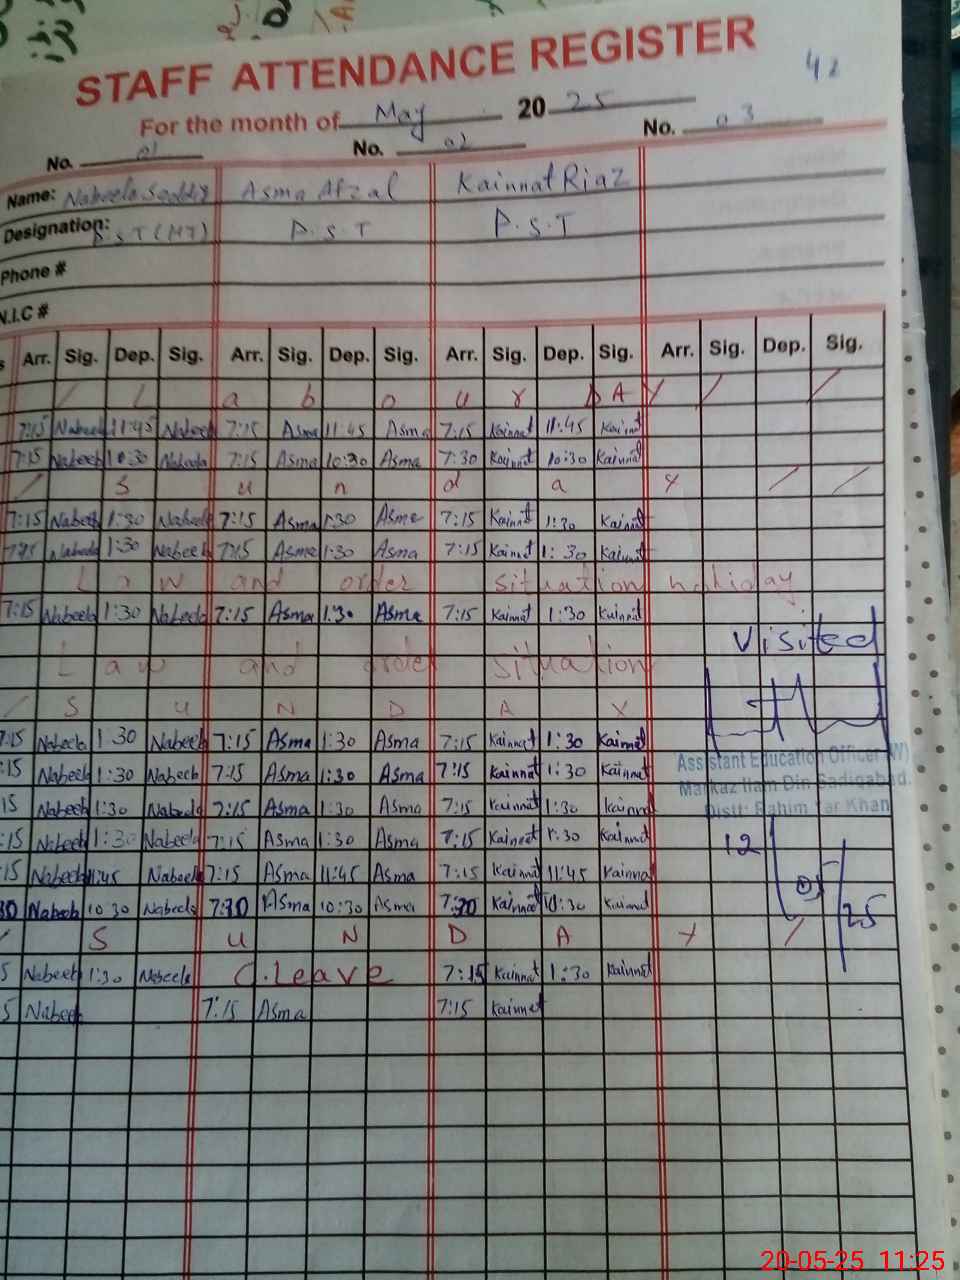 STAFF ATTENDANCE REGISTER
42
For the month of May 2025
No. 01 No. 02 No. 03
Name: Nabeela Asma Afzal Kainnat Riaz
Designation: P.S.T P.S.T P.S.T
Phone #
N.I.C #
Arr. Sig. Dep. Sig. Arr. Sig. Dep. Sig. Arr. Sig. Dep. Sig. Arr. Sig. Dep. Sig.
/ L a b o u r D A Y / /
7:15 Nabeela 11:45 Nabeela 7:15 Asma 11:45 Asma 7:15 Kainnat 11:45 Kainnat
7:15 Nabeela 10:30 Nabeela 7:15 Asma 10:30 Asma 7:30 Kainnat 10:30 Kainnat
/ S u n d a y / /
7:15 Nabeela 1:30 Nabeela 7:15 Asma 1:30 Asma 7:15 Kainnat 1:30 Kainnat
7:15 Nabeela 1:30 Nabeela 7:15 Asma 1:30 Asma 7:15 Kainnat 1:30 Kainnat
Law and order situation holiday
7:15 Nabeela 1:30 Nabeela 7:15 Asma 1:30 Asma 7:15 Kainnat 1:30 Kainnat
Visited
Law and order situation
/ S U N D A Y
7:15 Nabeela 1:30 Nabeela 7:15 Asma 1:30 Asma 7:15 Kainnat 1:30 Kainnat
:15 Nabeela 1:30 Nabeela 7:15 Asma 1:30 Asma 7:15 Kainnat 1:30 Kainnat
Assistant Education Officer (W)
Markaz Ilam Din Sadiqabad.
Distt: Rahim Yar Khan
15 Nabeela 1:30 Nabeela 7:15 Asma 1:30 Asma 7:15 Kainnat 1:30 Kainnat
:15 Nabeela 1:30 Nabeela 7:15 Asma 1:30 Asma 7:15 Kainnat 1:30 Kainnat
12/05/25
:15 Nabeela 11:45 Nabeela 7:15 Asma 11:45 Asma 7:15 Kainnat 11:45 Kainnat
30 Nabeela 10:30 Nabeela 7:30 Asma 10:30 Asma 7:30 Kainnat 10:30 Kainnat
/ S U N D A Y /
5 Nabeela 1:30 Nabeela C.Leave 7:15 Kainnat 1:30 Kainnat
5 Nabeela 7:15 Asma 7:15 Kainnat
20-05-25 11:25